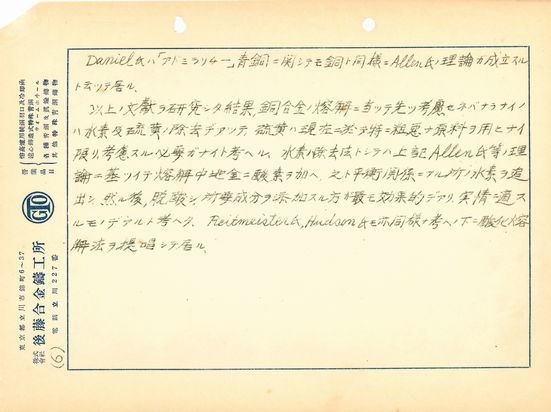 Daniel氏ハ「アドミラリチー」青銅ニ関シテモ銅ト同様ニAllen氏ノ理論ガ成立スル
ト云ッテ居ル.
以上ノ文献ヲ研究シタ結果,銅合金ノ熔解ニ当ッテ先ヅ考慮セネバナラナイノ
ハ水素及硫黄ノ除去デアッテ,硫黄ハ現在デハ特ニ粗悪ナ原料ヲ用ヒナイ
限リ,考慮スル必要ガナイト考ヘル. 水素ノ除去法トシテハ上記Allen氏等ノ理
論ニ基ヅイテ熔解中地金ニ酸素ヲ加ヘ,之ト平衡関係ニアル所ノ水素ヲ追
出シ,然ル後,脱酸シ,所要成分ヲ添加スル方ガ最モ効果的デアリ,実情ニ適ス
ルモノデアルト考ヘタ. Reitmeister氏,Hudson氏モ亦同様ナ考ヘノ下ニ酸化熔
解法ヲ提唱シテ居ル.
營業品目
各種普通鑄物
其他特殊青銅
GTO
株式會社 後藤合金鑄工所
東京都立川市錦町6~37
電話立川227番
(6)